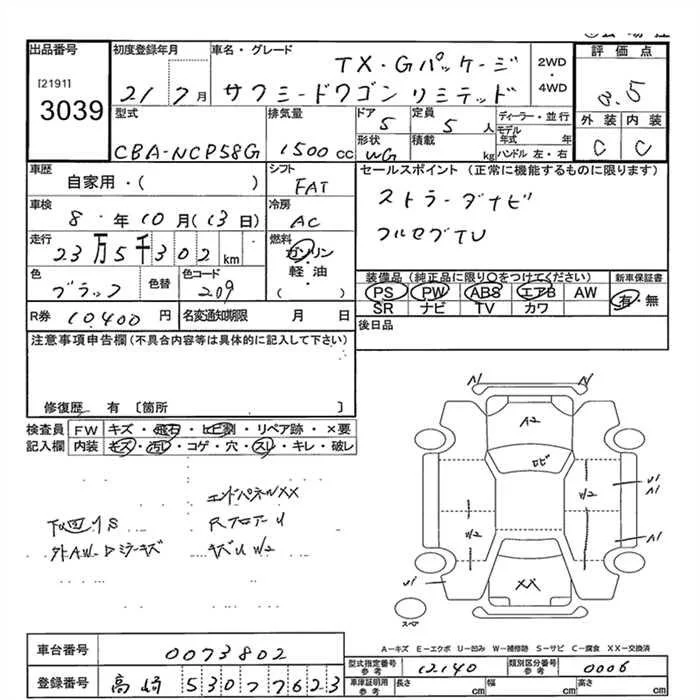 出品番号
[2191]
3039
初度登録年月
21 7月
車名・グレード
TX・Gパッケージ
サクシードワゴン リミテッド
2WD
・
4WD
評価点
3.5
外装 内装
C C
型式
CBA-NCP58G
排気量
1500 CC
ドア
5
定員
5 人
形状
WG
積載
kg
ディーラー・並行
モデル年式 年
ハンドル 左・右
車歴
自家用・( )
シフト
FAT
車検
8.年10月(13日)
冷房
AC
走行
23万5千302km
燃料
ガソリン
・
軽油
( )
色
ブラック
色替
色コード
209
R券 10,400 円
名変通知期限 月 日
セールスポイント (正常に機能するものに限ります)
ストラーダナビ
フルセグTV
装備品 (純正品に限り○をつけてください)
PS PW ABS エアB AW
SR ナビ TV カワ
新車保証書
有・無
後日品
注意事項申告欄(不具合内容等は具体的に記入して下さい)
修復歴 有 〔箇所 〕
検査員記入欄
FW キズ・飛石・ヒビ割・リペア跡・×要
内装 キズ・汚レ・コゲ・穴・スレ・キレ・破レ
エンドパネルXX
キズU W2
A1
A1
A2
W2
W2
U1
A1
A1
U1
XX
スペア
A-キズ E-エクボ U-凹み W-補修跡 S-サビ C-腐食 XX-交換済
車台番号
0073802
登録番号
高崎 530ろ7623
型式指定番号
参考
12140
類別区分番号
参考
0006
車庫証明用
参考
長さ cm
幅 cm
高さ cm